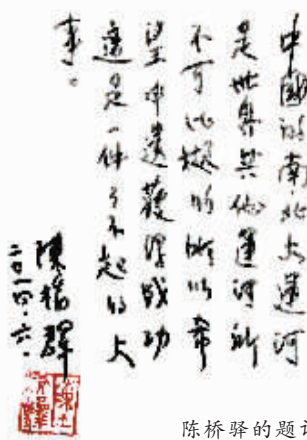 中國的南北大運河
是世界其他運河所
不可比擬的所以希
望申遺獲得成功
這是一件了不起的大
事。
陳橋驛
二〇一四.六.
陈桥驿的题词